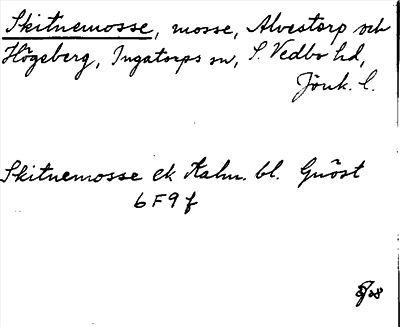 Skitnemosse, mosse, Alvestorp och
Högeberg, Ingatorps sn, S. Vedbo hd,
Jönk. l.
Skitnemosse ek Kalm. bl. Gnöst
6 F 9 f